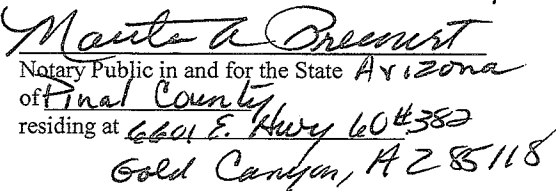 A
Notary Public in and for the State Arizona
of Pinal County,
residing at 6601 E. Hwy 60 #382
Gold Canyon, AZ 85118